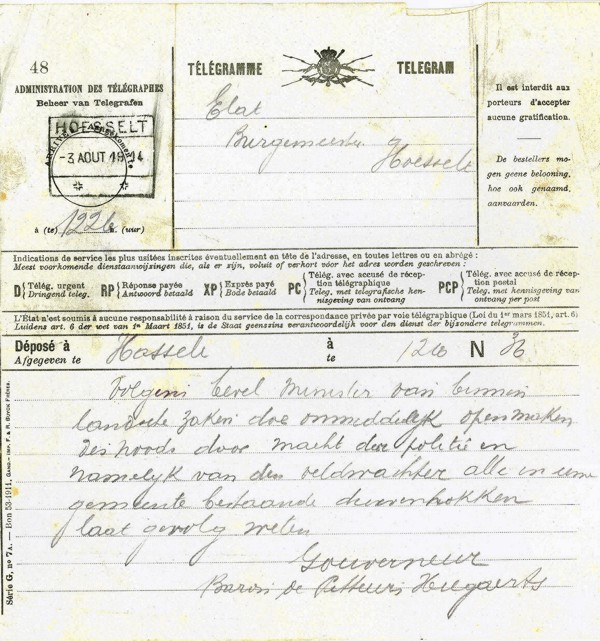 48
ADMINISTRATION DES TÉLÉGRAPHES
Beheer van Telegrafen
HOESSELT
ARRIVÉE Aangekomen te
-3 AOUT 1914
à (te) 1226 (uur)
TÉLÉGRAMME TELEGRAM
Etat
Burgemeester
Hoesselt
Il est interdit aux
porteurs d'accepter
aucune gratification.
De bestellers mo-
gen geene belooning,
hoe ook genaamd,
aanvaarden.
Indications de service les plus usitées inscrites éventuellement en tête de l'adresse, en toutes lettres ou en abrégé :
Meest voorkomende dienstaanwijzingen die, als er zijn, voluit of verkort vóór het adres worden geschreven :
D Télég. urgent
Dringend teleg.
RP Réponse payée
Antwoord betaald
XP Exprès payé
Bode betaald
PC Télég. avec accusé de récep-
tion télégraphique
Teleg. met telegrafische ken-
nisgeving van ontvang
PCP Télég. avec accusé de réception
postal
Teleg. met kennisgeving van
ontvang per post
L'État n'est soumis à aucune responsabilité à raison du service de la correspondance privée par voie télégraphique (Loi du 1er mars 1851, art. 6)
Luidens art. 6 der wet van 1n Maart 1851, is de Staat geenszins verantwoordelijk voor den dienst der bijzondere telegrammen.
Déposé à Hasselt à 1200 N 36
Afgegeven te te
Volgens bevel Minister van binnen
landsche zaken doe onmiddelyk openmaken
des noods door macht der politie en
namelyk van den veldwachter alle in uwe
gemeente bestaande duivenhokken
laat gevolg weten
Gouverneur
Baron de Pitteurs Hiegaerts
Série G, no 7A. — Bon 53-1911, Gand.- Imp. F. & R. Buyck Frères.